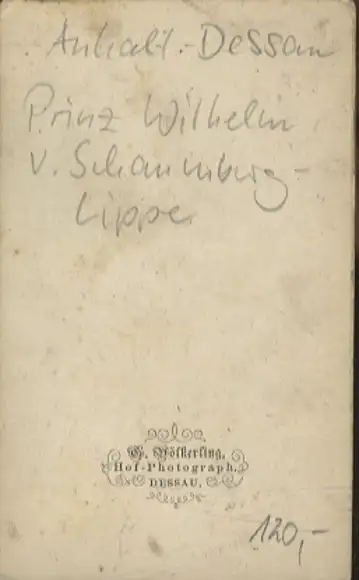 Anhalt.-Dessau
Prinz Wilhelm
v. Schaumburg-
Lippe
G. Völkerling,
Hof-Photograph.
DESSAU.
120,-